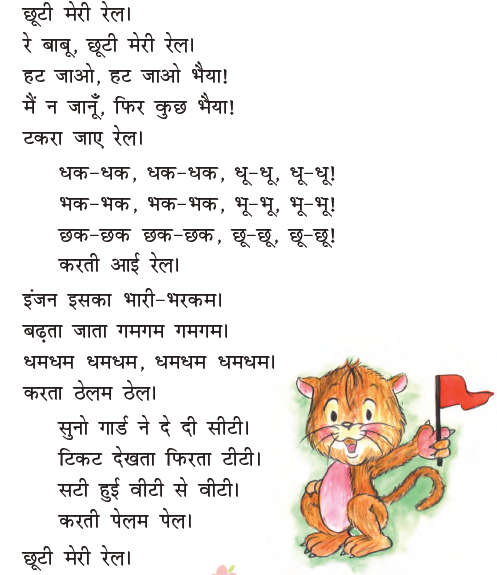 छूटी मेरी रेल।
रे बाबू, छूटी मेरी रेल।
हट जाओ, हट जाओ भैया!
मैं न जानूँ, फिर कुछ भैया!
टकरा जाए रेल।
धक-धक, धक-धक, धू-धू, धू-धू!
भक-भक, भक-भक, भू-भू, भू-भू!
छक-छक छक-छक, छू-छू, छू-छू!
करती आई रेल।
इंजन इसका भारी-भरकम।
बढ़ता जाता गमगम गमगम।
धमधम धमधम, धमधम धमधम।
करता ठेलम ठेल।
सुनो गार्ड ने दे दी सीटी।
टिकट देखता फिरता टीटी।
सटी हुई वीटी से वीटी।
करती पेलम पेल।
छूटी मेरी रेल।